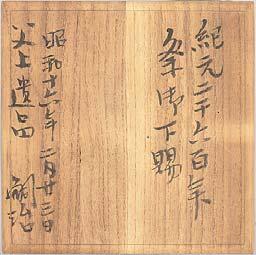 紀元二千六百年
御下賜
昭和十六年二月廿三日
父上遺品